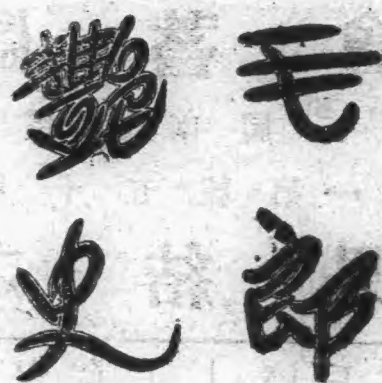 毛郎
艷史